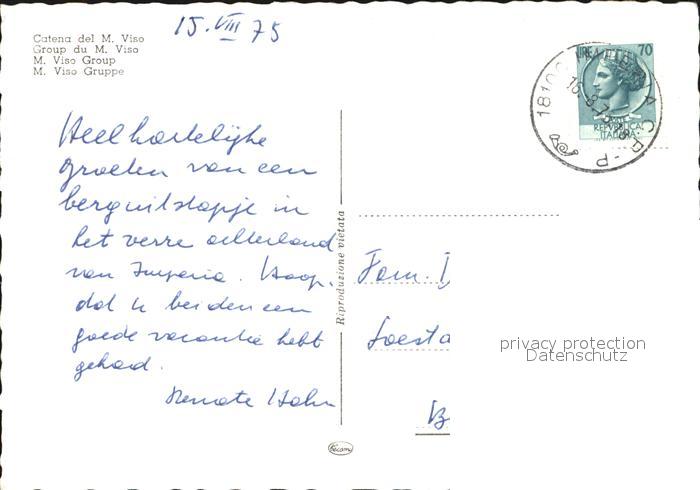 15.VIII 75
Catena del M. Viso
Group du M. Viso
M. Viso Group
M. Viso Gruppe
70
LIRE
REPVBBLICA
ITALIANA
18100 IMPERIA C.P.-P
16.8.75
Heel hartelijke
groeten van een
berguitstapje in
het verre achterland
van Imperia. Hoop,
dat u beiden een
goede vacantie hebt
gehad.
Renate Hahn
Riproduzione vietata
Fam. D
Soesta
B
privacy protection
Datenschutz